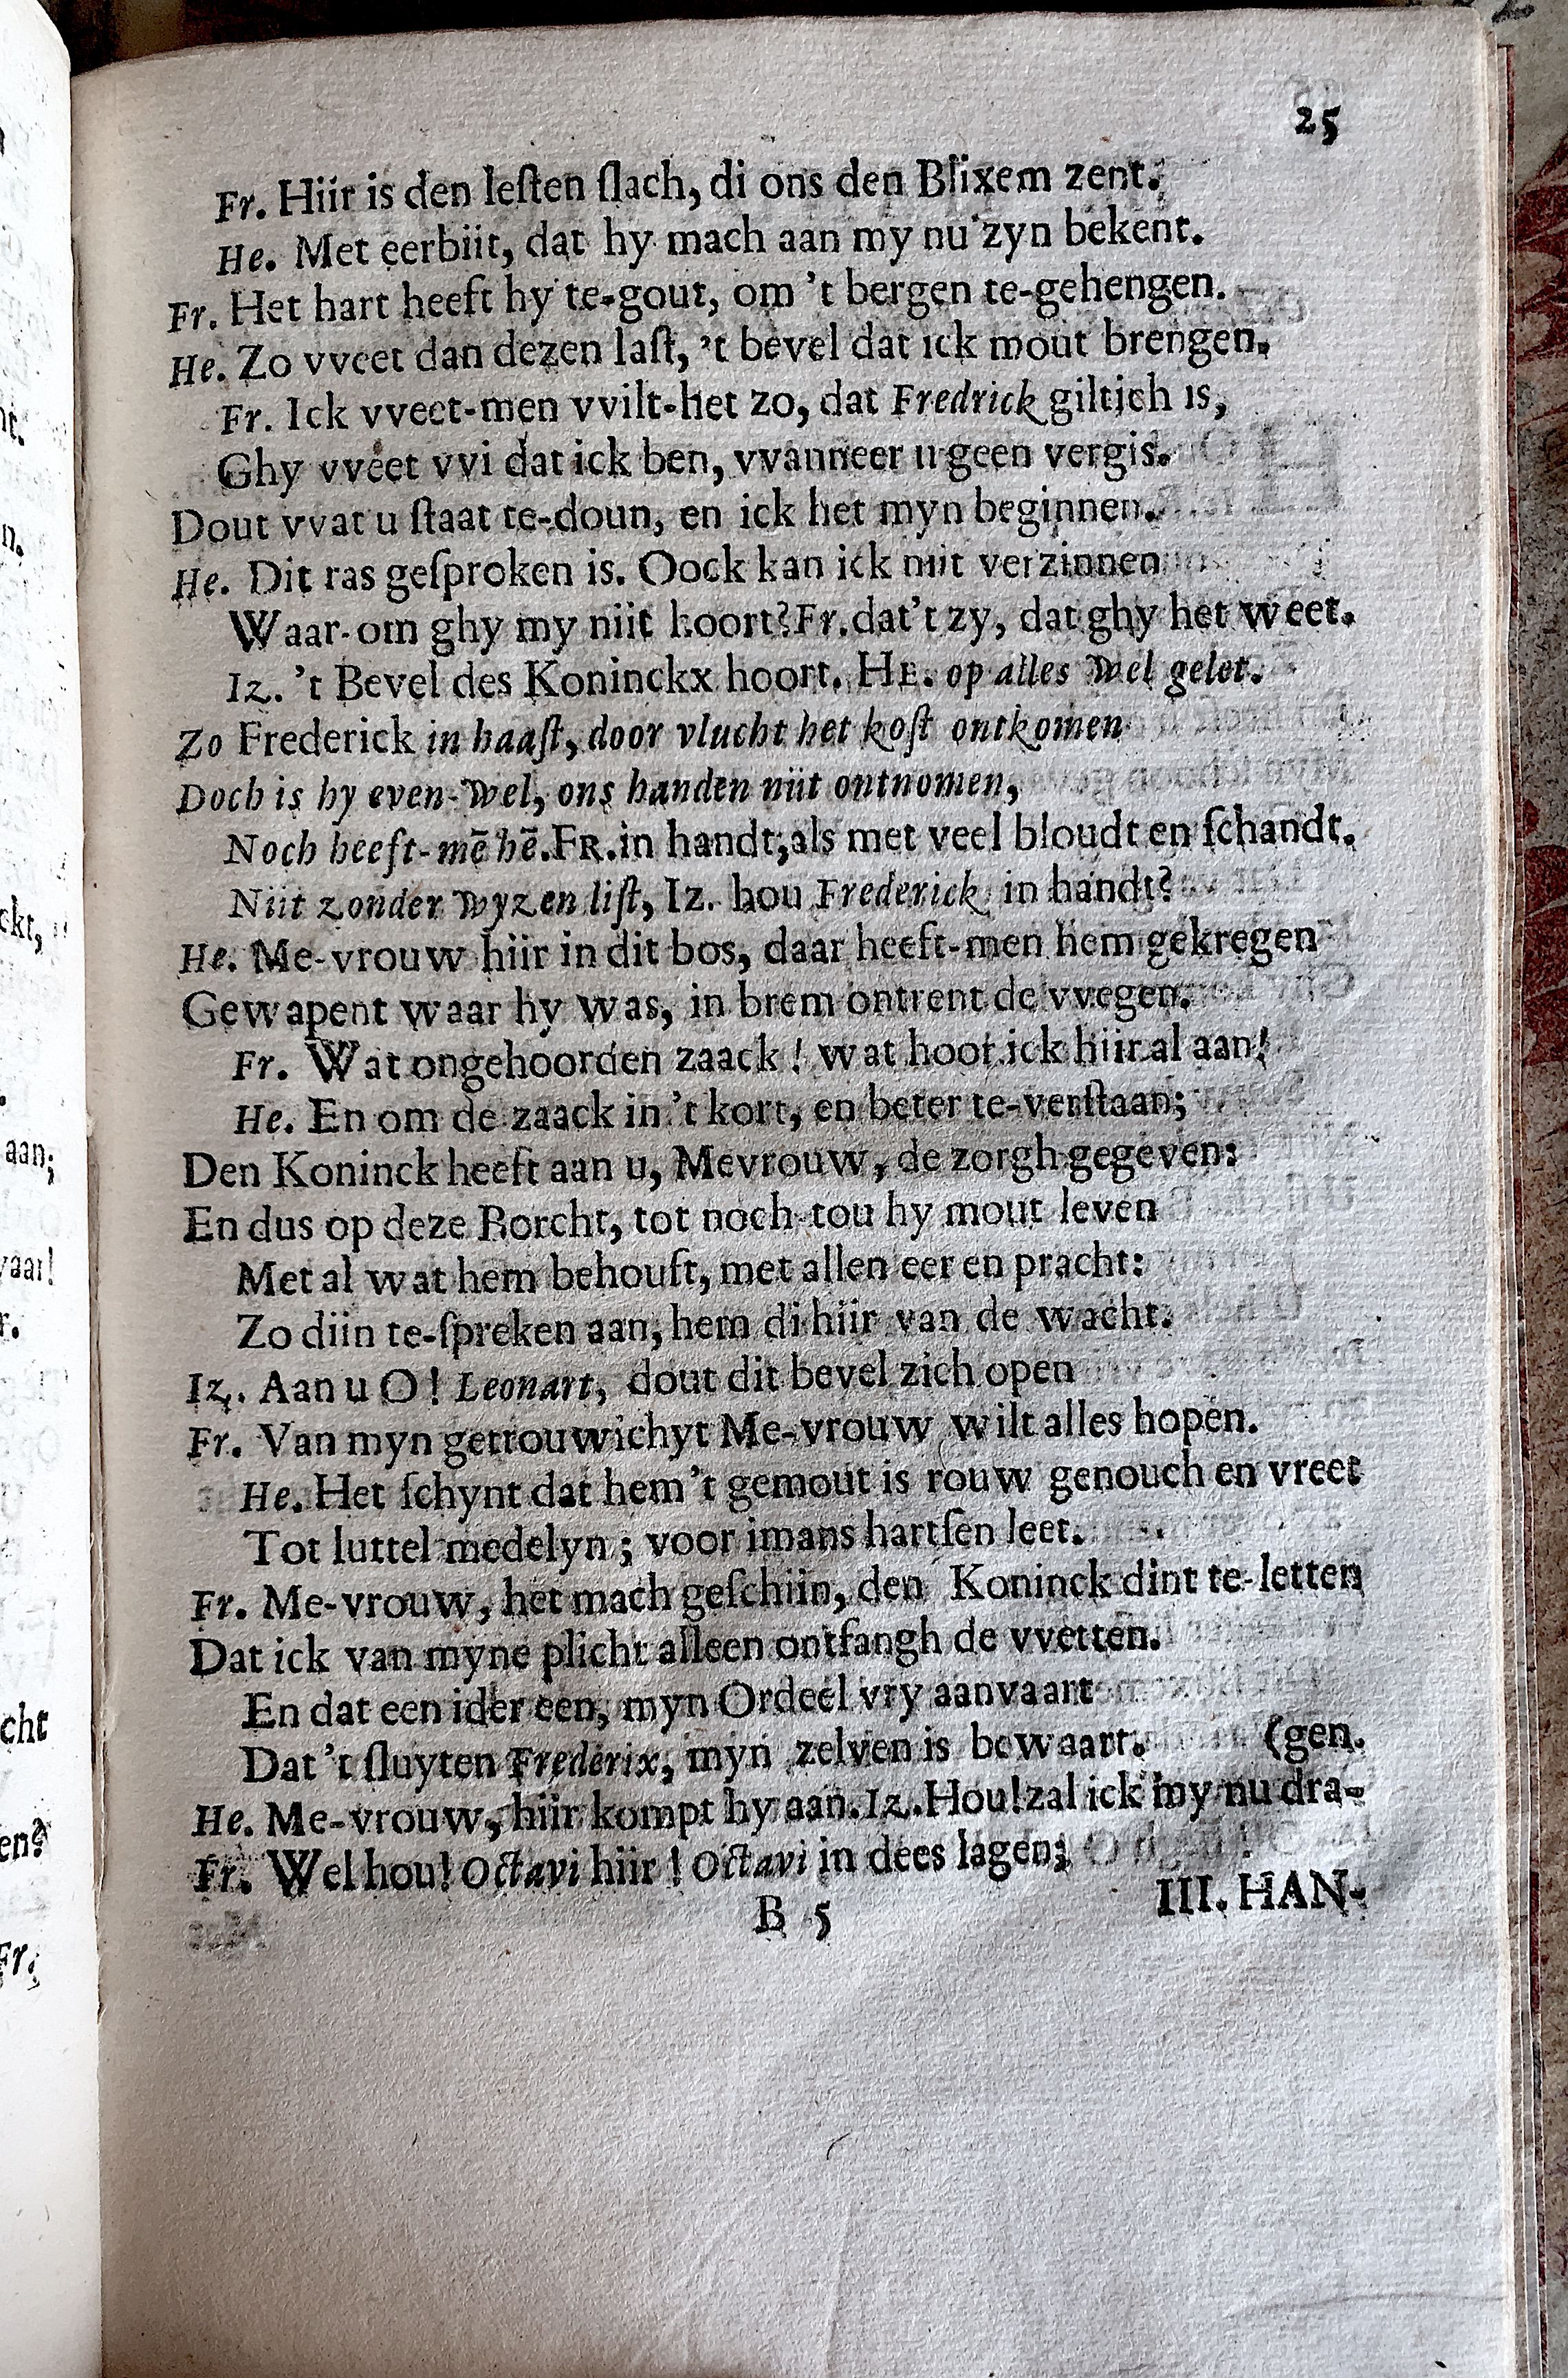 25
Fr. Hiir is den leſten ſlach, di ons den Blixem zent.
He. Met eerbiit, dat hy mach aan my nu zyn bekent.
Fr. Het hart heeft hy te-gout, om 't bergen te-gehengen.
He. Zo vveet dan dezen laſt, 't bevel dat ick mout brengen.
Fr. Ick vveet-men vvilt-het zo, dat Fredrick giltich is,
Ghy vveet vvi dat ick ben, vvanneer u geen vergis.
Dout vvat u ſtaat te-doun, en ick het myn beginnen.
He. Dit ras geſproken is. Oock kan ick niit verzinnen
Waar-om ghy my niit hoort? Fr. dat't zy, dat ghy het weet.
Iz. 't Bevel des Koninckx hoort. HE. op alles wel gelet.
Zo Frederick in haaſt, door vlucht het koſt ontkomen
Doch is hy even-wel, ons handen niit ontnomen,
Noch heeft-mē hē. FR. in handt; als met veel bloudt en ſchandt.
Niit zonder wyz en liſt, Iz. hou Frederick in handt?
He. Me-vrouw hiir in dit bos, daar heeft-men hem gekregen
Gewapent waar hy was, in brem ontrent de vvegen.
Fr. Wat ongehoorden zaack! wat hoor ick hiir al aan!
He. En om de zaack in 't kort, en beter te-verſtaan;
Den Koninck heeft aan u, Mevrouw, de zorgh gegeven:
En dus op deze Borcht, tot noch-tou hy mout leven
Met al wat hem behouft, met allen eer en pracht:
Zo diin te-ſpreken aan, hem di hiir van de wacht.
Iz. Aan u O! Leonart, dout dit bevel zich open
Fr. Van myn getrouwichyt Me-vrouw wilt alles hopen.
He. Het ſchynt dat hem 't gemout is rouw genouch en vreet
Tot luttel medelyn; voor imans hartſen leet.
Fr. Me-vrouw, het mach geſchiin, den Koninck dint te-letten
Dat ick van myne plicht alleen ontfangh de vvetten.
En dat een ider een, myn Ordeel vry aanvaart
Dat 't ſluyten Frederix, myn zelven is bewaart. (gen.
He. Me-vrouw, hiir kompt hy aan. Iz. Hou! zal ick my nu dra-
Fr. Wel hou! Octavi hiir! Octavi in dees lagen;
B 5 III. HAN-